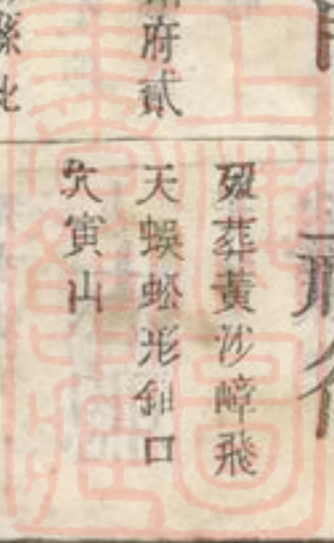 府貳
歿葬黃沙嶂飛
天蜈蚣形鉗口
穴寅山